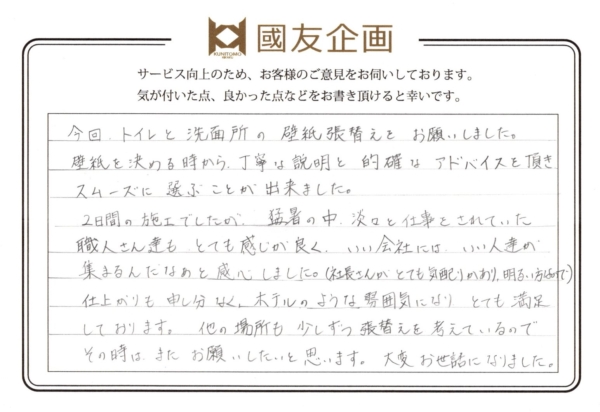 KUNITOMO
國友企画
サービス向上のため、お客様のご意見をお伺いしております。
気が付いた点、良かった点などをお書き頂けると幸いです。
今回、トイレと洗面所の壁紙張替えをお願いしました。
壁紙を決める時から、丁寧な説明と的確なアドバイスを頂き
スムーズに選ぶことが出来ました。
2日間の施工でしたが、猛暑の中、淡々と仕事をされていた
職人さん達も、とても感じが良く、いい会社には、いい人達が
集まるんだなあと感心しました。(社長さんがとても気配りがあり、明るい方なので)
仕上がりも申し分なく、ホテルのような雰囲気になり とても満足
しております。他の場所も少しずつ張替えを考えているので
その時は、またお願いしたいと思います。大変お世話になりました。